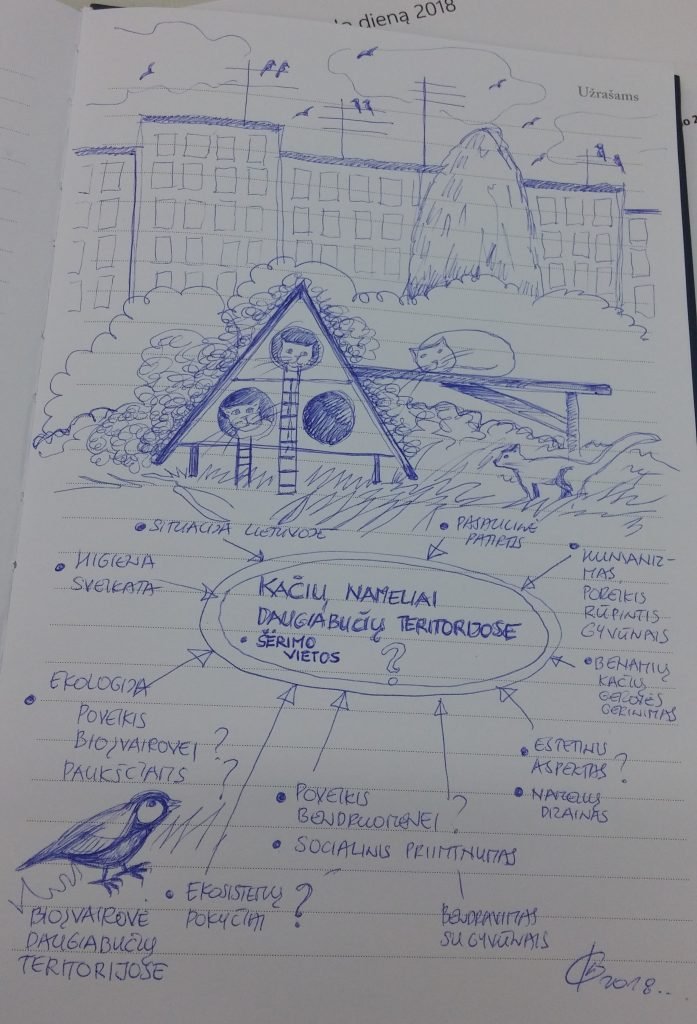 dieną 2018
Užrašams
SITUACIJA LIETUVOJE
PASAULINĖ
PATIRTIS
HIGIENA
SVEIKATA
HUMANIZ-
MAS,
POREIKIS
RŪPINTIS
GYVŪNAIS
KAČIŲ NAMELIAI
DAUGIABUČIŲ TERITORIJOSE
ŠĖRIMO
VIETOS ?
BENAMIŲ
KAČIŲ
GEROVĖS
GERINIMAS
EKOLOGIJA
POVEIKIS
BIOĮVAIROVEI ?
PAUKŠČIAMS ?
ESTETINIS
ASPEKTAS ?
NAMELIŲ
DIZAINAS
POVEIKIS
BENDRUOMENEI ?
SOCIALINIS PRIIMTINUMAS
EKOSISTEMŲ
POKYČIAI ?
BENDRAVIMAS
SU GYVŪNAIS
BIOĮVAIROVĖ
DAUGIABUČIŲ
TERITORIJOSE
2018..